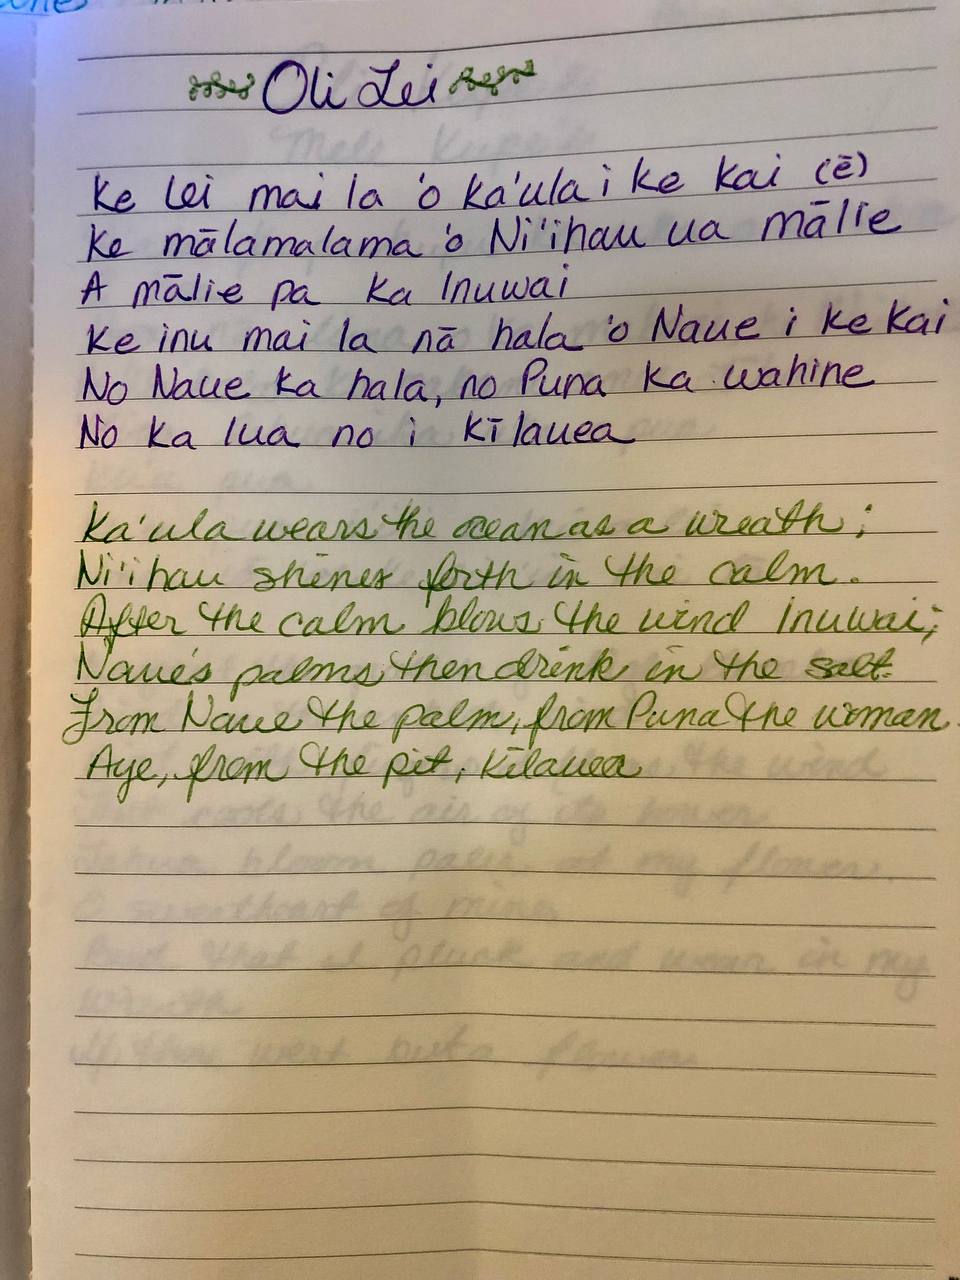 Oli Lei
Ke lei mai la 'o Ka'ula i ke kai (ē)
Ke mālamalama 'o Ni'ihau ua mālie
A mālie pa ka Inuwai
Ke inu mai la nā hala 'o Naue i ke kai
No Naue ka hala, no Puna ka wahine
No ka lua no i Kīlauea
Ka'ula wears the ocean as a wreath;
Ni'ihau shines forth in the calm.
After the calm blows the wind Inuwai;
Naue's palms then drink in the salt.
From Naue the palm, from Puna the woman
Aye, from the pit, Kīlauea